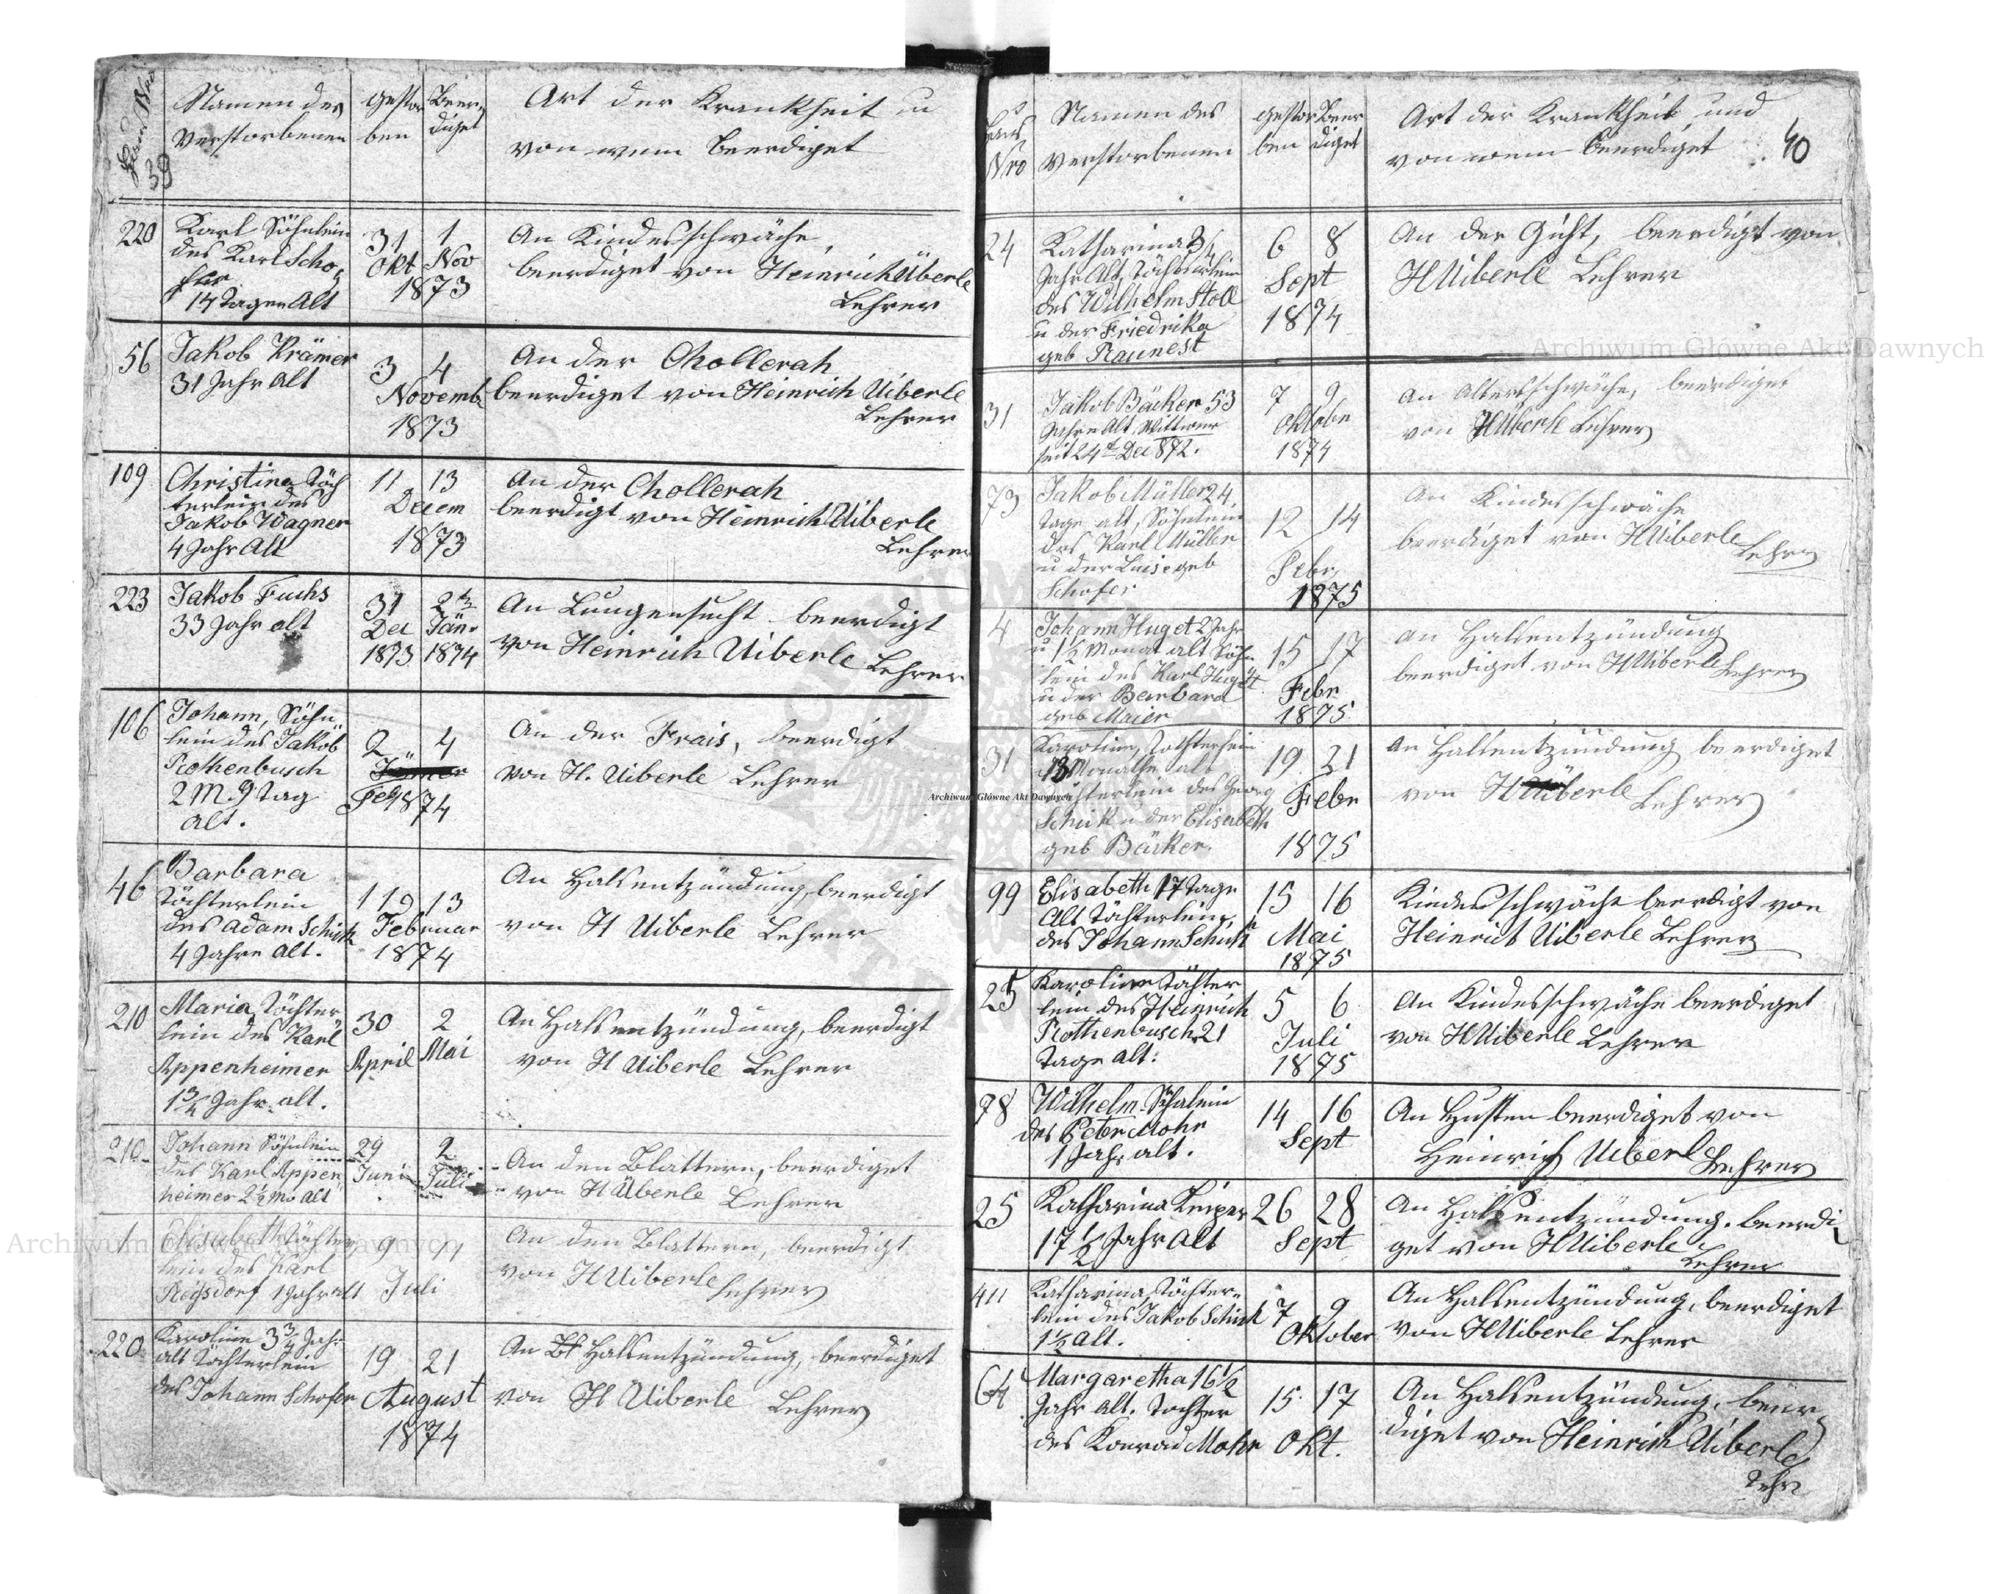 Haus Nro
39
Namen des
Verstorbenen
gestor
ben
Beer
diget
Art der Krankheit u
von wem beerdiget
220
Karl Söhnlein
des Karl Scho
fer
14 Tage Alt
31
Okt
1
Nov
1873
An Kindesschwäche,
beerdiget von Heinrich Überle
Lehrer
56
Jakob Krämer
31 Jahr Alt
3 4
Novemb
1873
An der Chollerah
beerdiget von Heinrich Uiberle
Lehrer
109
Christina Töch
terlein des
Jakob Wagner
4 Jahr Alt
11 13
Decem
1873
An der Chollerah
beerdigt von Heinrich Uiberle
Lehrer
223
Jakob Fuchs
33 Jahr alt
31
Dec
1873
2ten
Jän
1874
An Lungensucht beerdigt
von Heinrich Uiberle Lehrer
106
Johann, Söhn
lein des Jakob
Rothenbusch
2 M. 9 Tag
alt.
2 4
Jänner
Feb 1874
An der Frais, beerdigt
von H. Uiberle Lehrer
46
Barbara
Töchterlein
des Adam Schick
4 Jahre alt.
13
Februar
1874
An Halsentzündung, beerdigt
von H Uiberle Lehrer
210
Maria Töchter
lein des Karl
Appenheimer
1 3/4 Jahr alt.
30
April
2
Mai
An Halsentzündung, beerdigt
von H Uiberle Lehrer
210
Johann Söhnlein
des Karl Appen
heimer 2 1/2 Mo alt
29
Juni
2
Juli
An den Blattern, beerdiget
von H Überle Lehrer
1
Elisabeth Töchter
lein des Karl
Reisdorf 1 Jahr alt
9 11
Juli
An den Blattern, beerdigt
von H Uiberle Lehrer
220
Karoline 3 3/4 Jahr
alt Töchterlein
des Johann Schofer
19 21
August
1874
An Halsentzündung, beerdiget
von H Uiberle Lehrer
Haus
Nro
Namen des
Verstorbenen
gestor
ben
Beer
diget
Art der Krankheit und
von wem beerdiget
40
24
Katharina 3/4
Jahr Alt, Töchterlein
des Wilhelm Stoll
u der Friedrika
geb Raunest
6 8
Sept
1874
An der Gicht, beerdigt von
H Uiberle Lehrer
31
Jakob Bäcker 53
Jahre Alt, Wittwer
seit 24t Dec 872.
7 9
Oktobe
1874
An Altersschwäche, beerdiget
von H Uiberle Lehrer
73
Jakob Müller 24
Tage alt, Söhnlein
des Karl Müller
u der Luise geb
Schofer
12 14
Febr
1875
An Kindesschwäche
beerdiget von H Uiberle
Lehrer
4
Johann Huget 2 Jahr
u 1 1/2 Monat alt Söhn
lein des Karl Huget
u der Barbara
geb Maier
15 17
Febr
1875
An Halsentzündung
beerdiget von H Uiberle Lehrer
31
Karolina, Tochterlein
13 Monathe alt
Töchterlein des Georg
Schick u der Elisabeth
geb Bäcker.
19 21
Febr
1875
An Halsentzündung beerdiget
von H Uiberle Lehrer
99
Elisabeth 17 Tage
Alt Töchterlein
des Johann Schick
15 16
Mai
1875
Kindesschwäche beerdigt von
Heinrich Uiberle Lehrer
25
Karoline Töchter
lein des Heinrich
Rothenbusch 21
Tage alt.
5 6
Juli
1875
An Kindesschwäche beerdiget
von H Uiberle Lehrer
98
Wilhelm Söhnlein
des Peter Mohr
1 Jahr alt.
14 16
Sept
An Husten beerdiget von
Heinrich Uiberle Lehrer
25
Katharina Keiper
17 1/2 Jahr Alt
26 28
Sept
An Halsentzündung, beerdi
get von H Uiberle
Lehrer
Katharina Töchter=
lein des Jakob Schick
1 1/2 Alt.
7 9
Oktober
An Halsentzündung, beerdiget
von H Uiberle Lehrer
64
Margaretha 16 1/2
Jahr alt. Tochter
des Konrad Mohr
15 17
Okt.
An Halsentzündung, beer
diget von Heinrich Uiberle
Lehr
Archiwum Główne Akt Dawnych
Archiwum Główne Akt Dawnych
Archiwum Główne Akt Dawnych